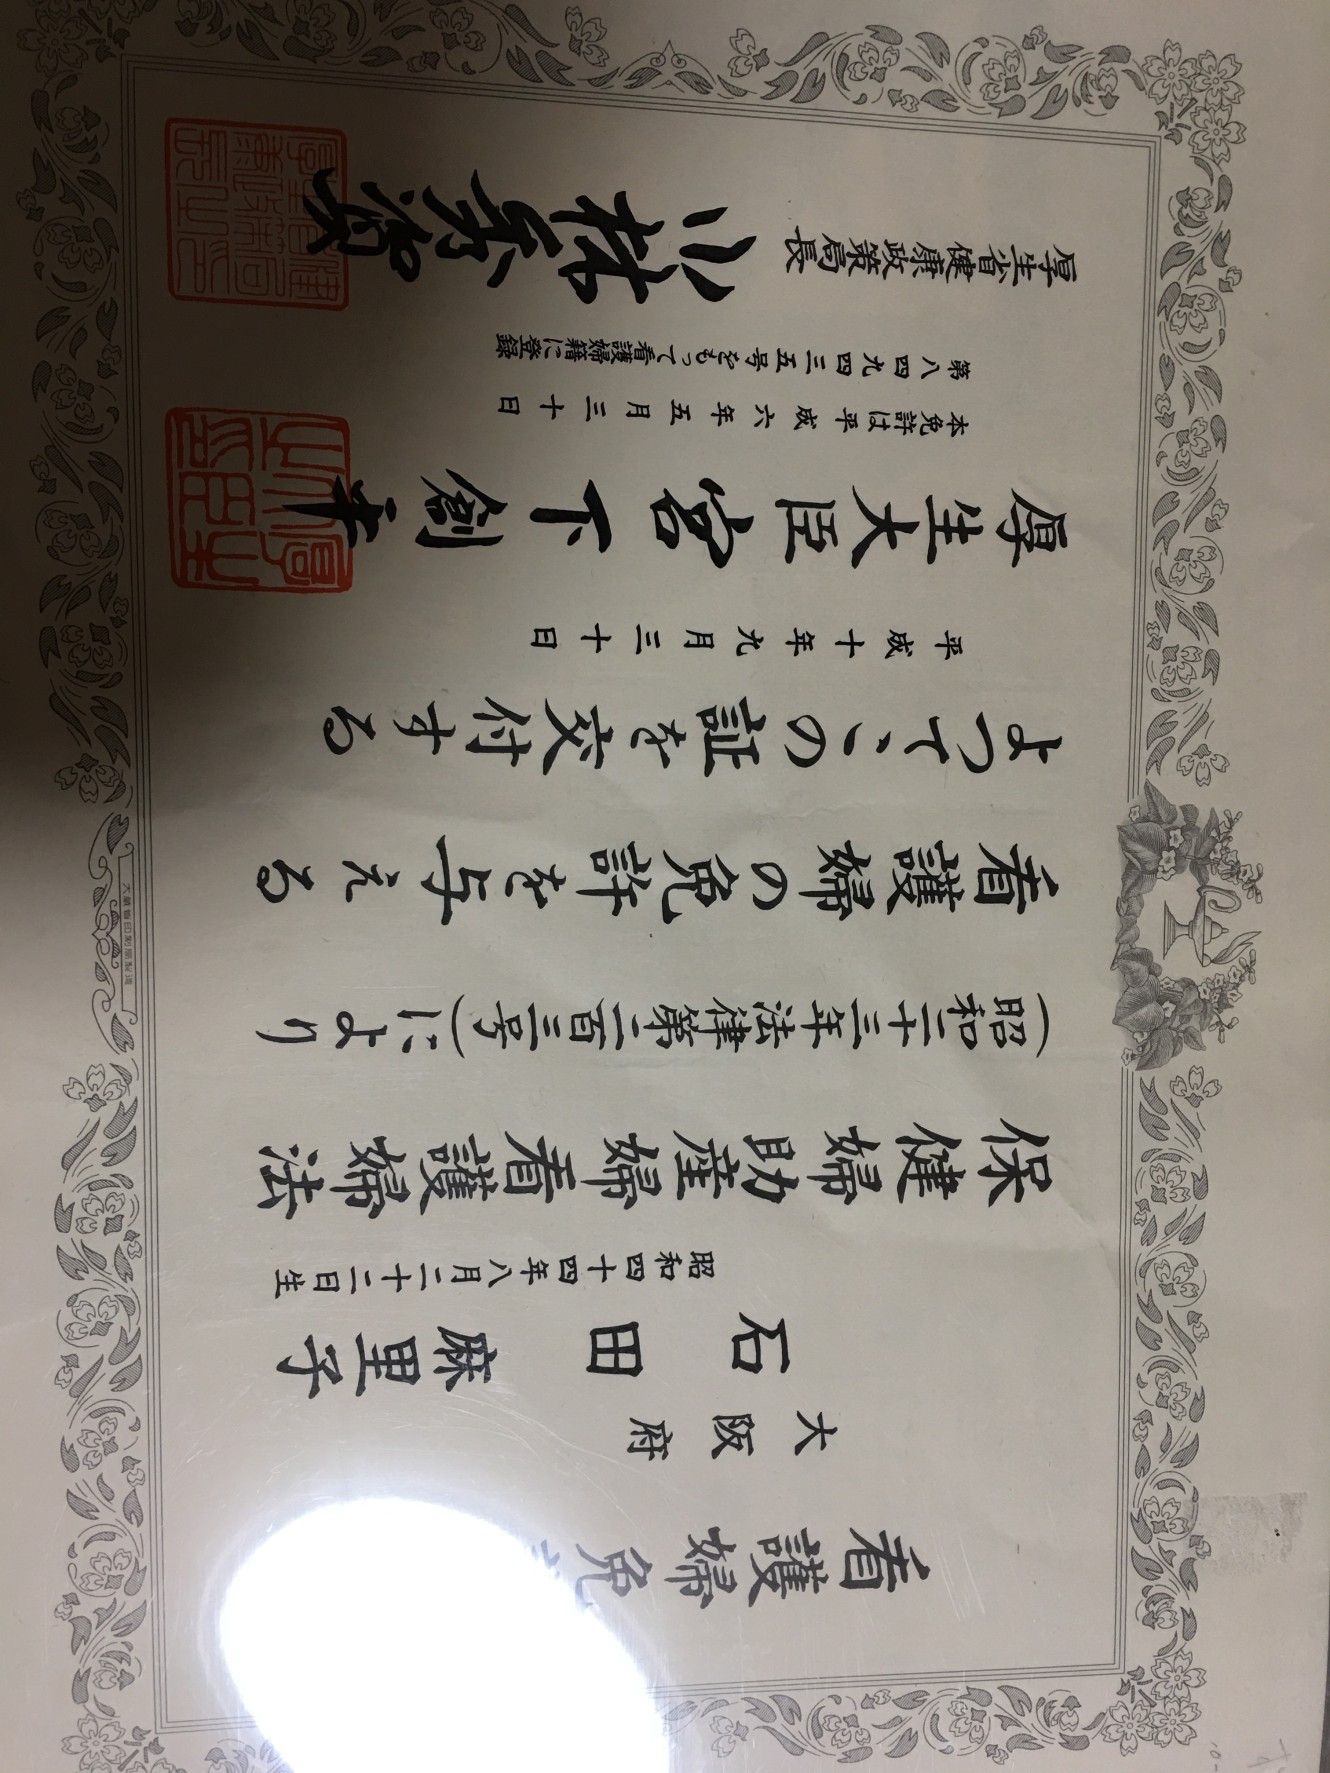 看護婦免
大阪府
石田麻里子
昭和四十四年八月二十二日生
保健婦助産婦看護婦法
(昭和二十三年法律第二百三号)により
看護婦の免許を与える
よつてこの証を交付する
平成十年九月三十日
厚生大臣 宮下創平
本免許は平成六年五月三十日
第八四九四三五号をもって看護婦籍に登録
厚生省健康政策局長
小林秀資
大蔵省印刷局製造